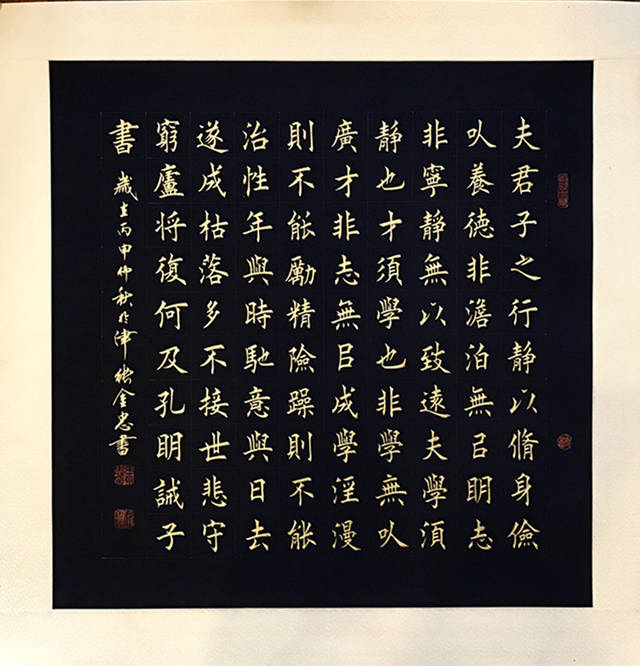 夫君子之行静以脩身儉
㕥養德非澹泊無㠯明志
非寧静無以致遠夫學須
静也才須學也非學無㕥
廣才非志無㠯成學淫漫
則不能勵精險躁則不能
治性年與時馳意與日去
遂成枯落多不接世悲守
窮廬将復何及孔明誡子
書 歲在丙申仲秋於津張金忠書